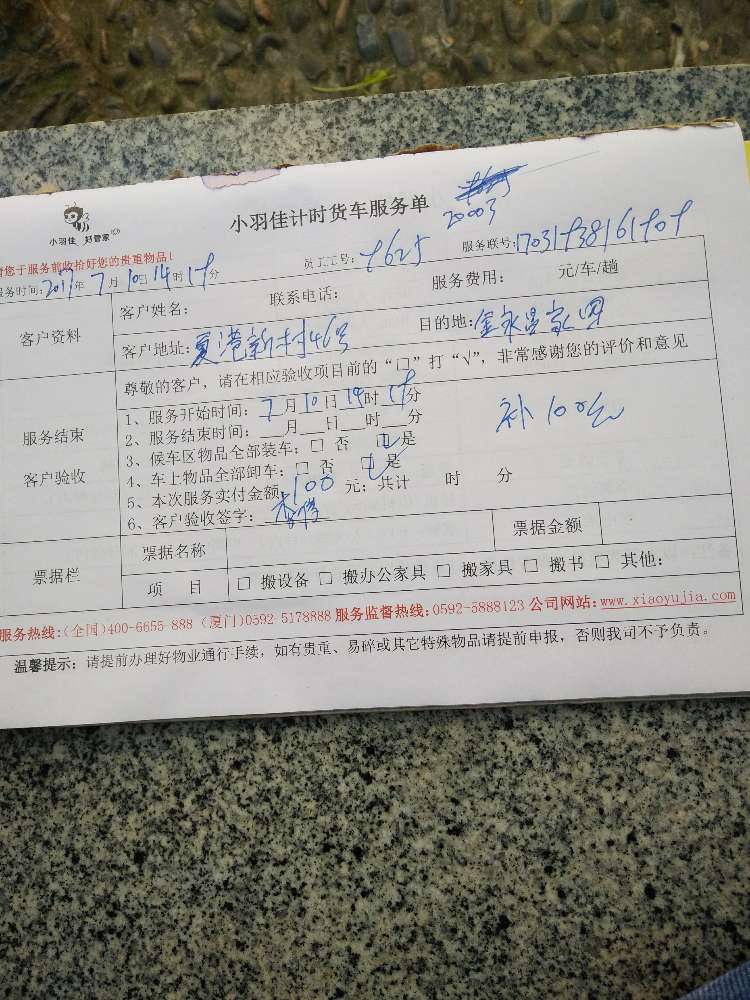 小羽佳 好管家
小羽佳计时货车服务单
20003
请您于服务前收拾好您的贵重物品!
员工工号:
服务联号:
服务时间:2017年7月10日14时 分
客户资料
客户姓名: 联系电话: 服务费用: 元/车/趟
客户地址:夏港新村46号 目的地:
服务结束
客户验收
尊敬的客户,请在相应验收项目前的“口”打“√”,非常感谢您的评价和意见
1、服务开始时间:7月10日14时 分
补100元
2、服务结束时间: 月 日 时 分
3、候车区物品全部装车:□ 否 □ 是
4、车上物品全部卸车:□ 否 □ 是
5、本次服务实付金额:100元;共计 时 分
6、客户验收签字:
票据栏
票据名称 票据金额
项 目 □ 搬设备 □ 搬办公家具 □ 搬家具 □ 搬书 □ 其他:
服务热线:(全国)400-6655-888 (厦门)0592-5178888 服务监督热线:0592-5888123 公司网站:www.xiaoyujia.com
温馨提示:请提前办理好物业通行手续,如有贵重、易碎或其它特殊物品请提前申报,否则我司不予负责。